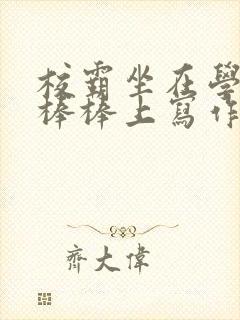 校霸坐在學
棒棒上寫作
齊大偉